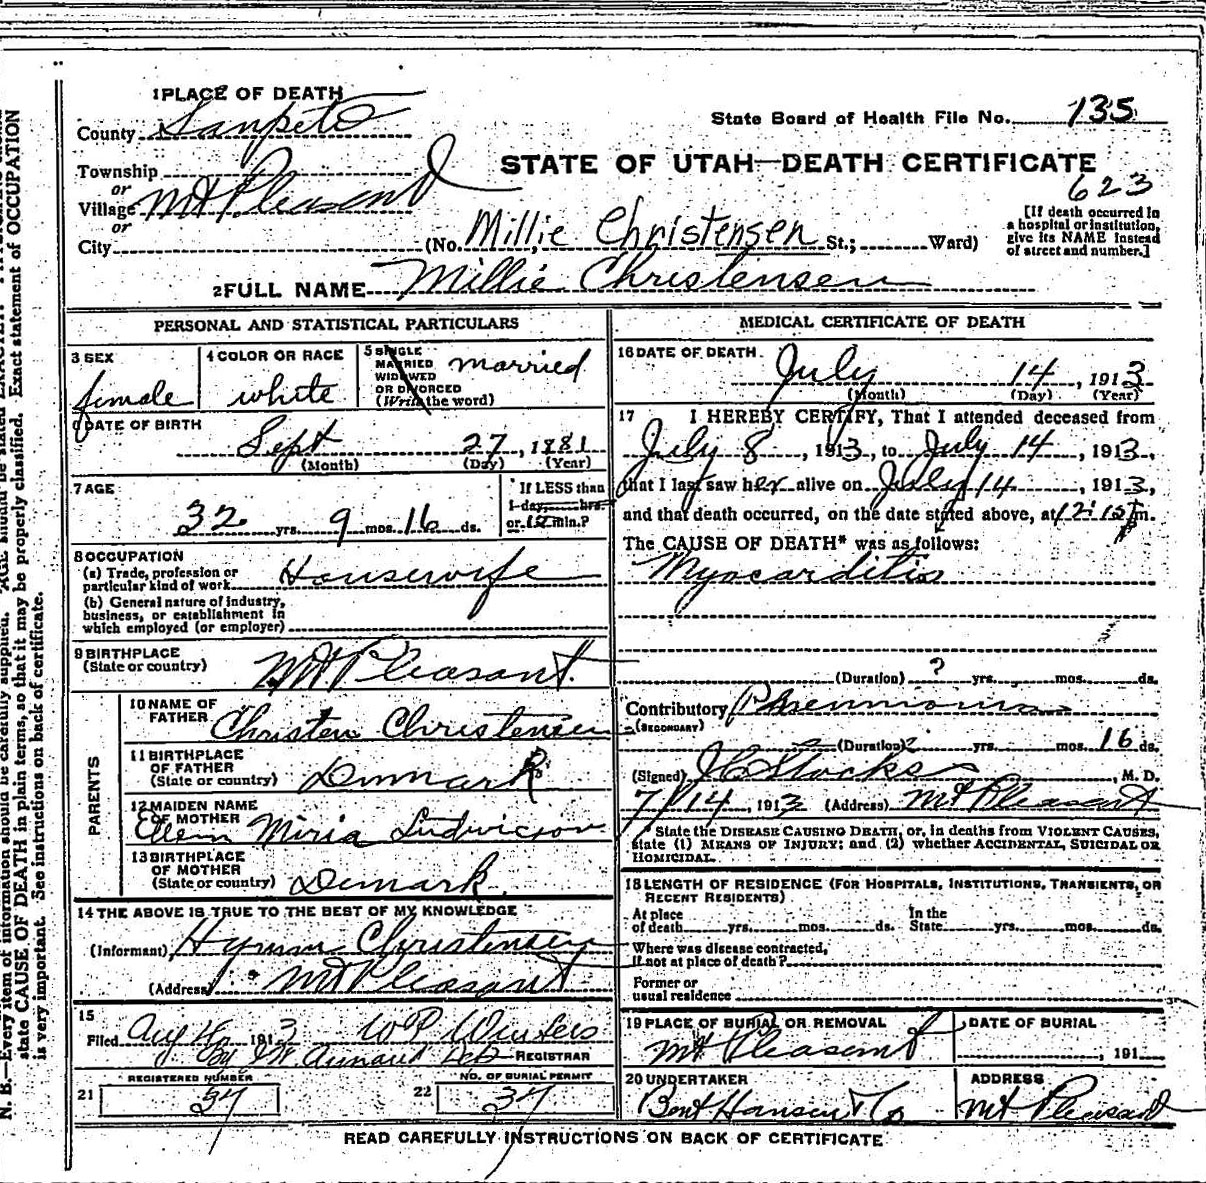 1 PLACE OF DEATH
County Sanpete
State Board of Health File No. 135
Township
or
Village Mt Pleasant
or
City
STATE OF UTAH—DEATH CERTIFICATE
623
(No. Millie Christensen St.; Ward)
[If death occurred in
a hospital or institution,
give its NAME instead
of street and number.]
2 FULL NAME Millie Christensen
PERSONAL AND STATISTICAL PARTICULARS
3 SEX
female
4 COLOR OR RACE
white
5 SINGLE
MARRIED
WIDOWED
OR DIVORCED
(Write the word)
married
6 DATE OF BIRTH
Sept 27, 1881
(Month) (Day) (Year)
7 AGE
32 yrs. 9 mos. 16 ds.
If LESS than
1 day, hrs.
or min.?
8 OCCUPATION
(a) Trade, profession or
particular kind of work Housewife
(b) General nature of industry,
business, or establishment in
which employed (or employer)
9 BIRTHPLACE
(State or country) Mt Pleasant
PARENTS
10 NAME OF
FATHER Christen Christensen
11 BIRTHPLACE
OF FATHER
(State or country) Denmark
12 MAIDEN NAME
OF MOTHER
Ellem Miria Ludvicson
13 BIRTHPLACE
OF MOTHER
(State or country) Demark
14 THE ABOVE IS TRUE TO THE BEST OF MY KNOWLEDGE
(Informant) Hyrum Christensen
(Address) Mt Pleasant
15
Filed Aug 4, 1913 W P Winters
REGISTRAR
REGISTERED NUMBER
21 37
NO. OF BURIAL PERMIT
22 37
MEDICAL CERTIFICATE OF DEATH
16 DATE OF DEATH
July 14, 1913
(Month) (Day) (Year)
17 I HEREBY CERTIFY, That I attended deceased from
July 8, 1913, to July 14, 1913,
that I last saw her alive on July 14, 1913,
and that death occurred, on the date stated above, at 12:15 m.
The CAUSE OF DEATH* was as follows:
Myocarditis
(Duration) ? yrs. mos. ds.
Contributory Pneumonia
(SECONDARY)
(Duration) yrs. mos. 16 ds.
(Signed) J C Stocks, M. D.
7/14, 1913 (Address) Mt Pleasant
* State the DISEASE CAUSING DEATH, or, in deaths from VIOLENT CAUSES,
state (1) MEANS OF INJURY; and (2) whether ACCIDENTAL, SUICIDAL OR
HOMICIDAL.
18 LENGTH OF RESIDENCE (FOR HOSPITALS, INSTITUTIONS, TRANSIENTS, OR
RECENT RESIDENTS)
At place
of death yrs. mos. ds.
In the
State yrs. mos. ds.
Where was disease contracted,
if not at place of death?
Former or
usual residence
19 PLACE OF BURIAL OR REMOVAL
Mt Pleasant
DATE OF BURIAL
, 191
20 UNDERTAKER
Bent Hansen & Co
ADDRESS
Mt Pleasant
READ CAREFULLY INSTRUCTIONS ON BACK OF CERTIFICATE
N. B.—Every item of information should be carefully supplied. AGE should be stated EXACTLY.
state CAUSE OF DEATH in plain terms, so that it may be properly classified. Exact statement of OCCUPATION
is very important. See instructions on back of certificate.